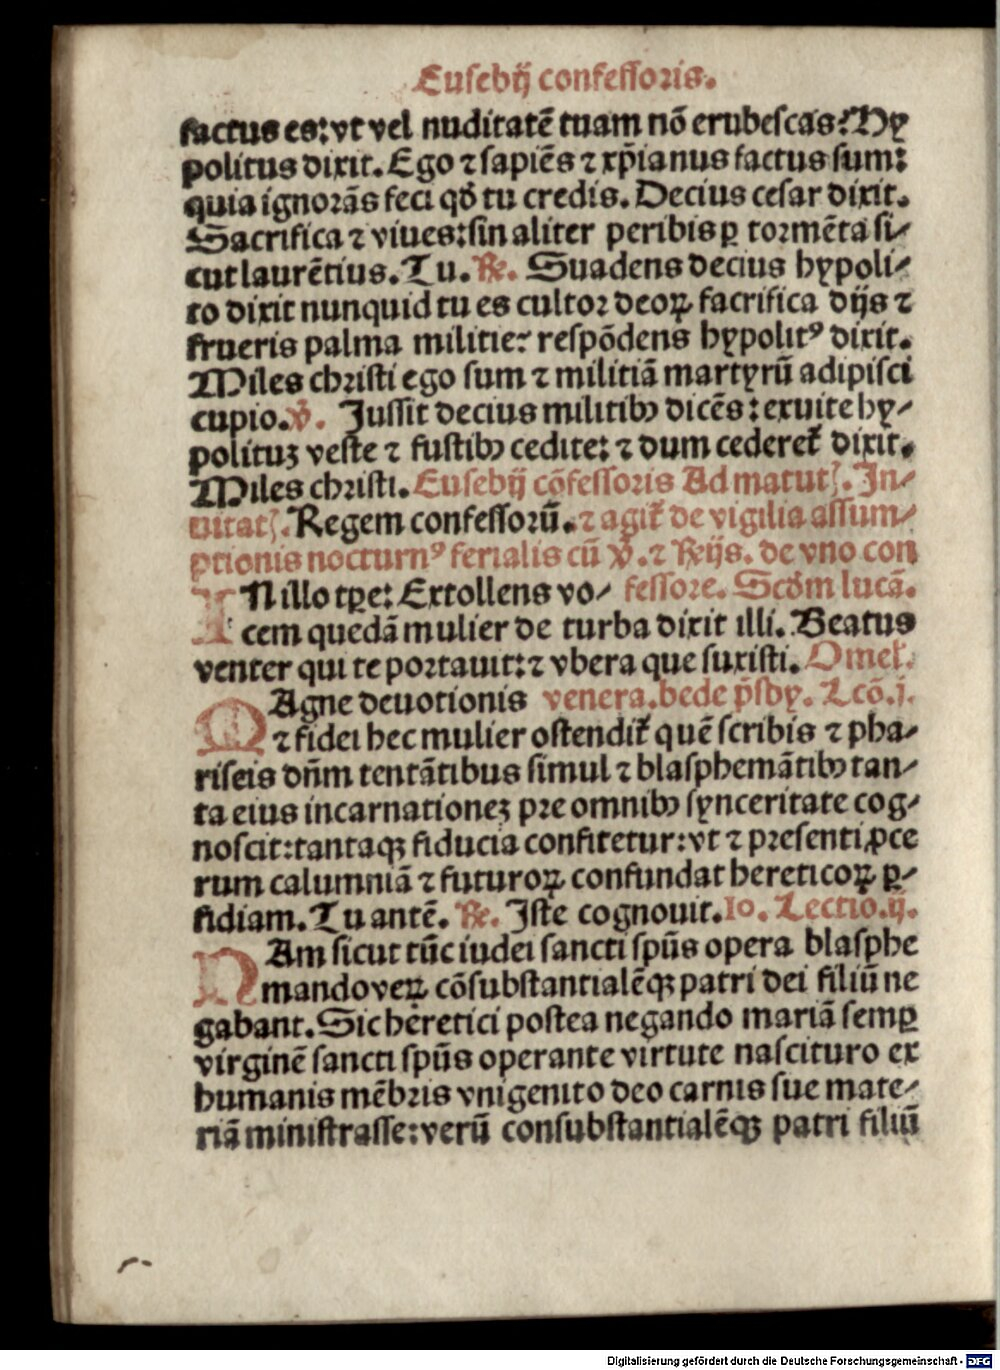 Euſebij confeſſoris.
factus es: vt vel nuditatē tuam nō erubeſcas? Hy
politus dixit. Ego ⁊ ſapiēs ⁊ xp̄ianus factus ſum:
quia ignorās feci qd̓ tu credis. Decius ceſar dixit.
Sacrifica ⁊ viues: ſin aliter peribis ꝑ tormēta ſi⸗
cut laurētius. Tu. ℟. Suadens decius hypoli⸗
to dixit nunquid tu es cultor deoꝝ ſacrifica dijs ⁊
frueris palma militie: reſpōdens hypolitꝰ dixit.
Miles chriſti ego ſum ⁊ militiā martyrū adipiſci
cupio. ℣. Juſſit decius militibꝰ dicēs: exuite hy⸗
polituꝫ veſte ⁊ fuſtibꝰ cedite: ⁊ dum cederet̄ dixit.
Miles chriſti. Euſebij cōfeſſoris Ad matut̄. In⸗
uitat̄. Regem confeſſorū. ⁊ agit̄ de vigilia aſſum⸗
ptionis nocturnꝰ ferialis cū ℣. ⁊ ℟ijs. de vno con
IN illo tꝑe: Extollens vo⸗ feſſore. Scd̓m lucā.
cem quedā mulier de turba dixit illi. Beatus
venter qui te portauit: ⁊ vbera que ſuxiſti. Omel̓.
MAgne deuotionis venera. bede p̄ſby. Lcō. j.
⁊ fidei hec mulier oſtendit̄ quē ſcribis ⁊ pha⸗
riſeis dn̄m tentātibus ſimul ⁊ blaſphemātibꝰ tan⸗
ta eius incarnationeꝫ pre omnibꝰ ſynceritate cog⸗
noſcit: tantaqꝫ fiducia confitetur: vt ⁊ preſenti ꝓce
rum calumniā ⁊ futuroꝝ confundat hereticoꝝ ꝑ⸗
fidiam. Tu antē. ℟. Iſte cognouit. 10. Lectio. ij.
NAm ſicut tūc iudei ſancti ſpūs opera blaſphe
mando veꝝ cōſubſtantialēqꝫ patri dei filiū ne
gabant. Sic heretici poſtea negando mariā ſemꝑ
virginē ſancti ſpūs operante virtute naſcituro ex
humanis mēbris vnigenito deo carnis ſue mate⸗
riā miniſtraſſe: verū conſubſtantialēqꝫ patri filiū
Digitalisierung gefördert durch die Deutsche Forschungsgemeinschaft - DFG